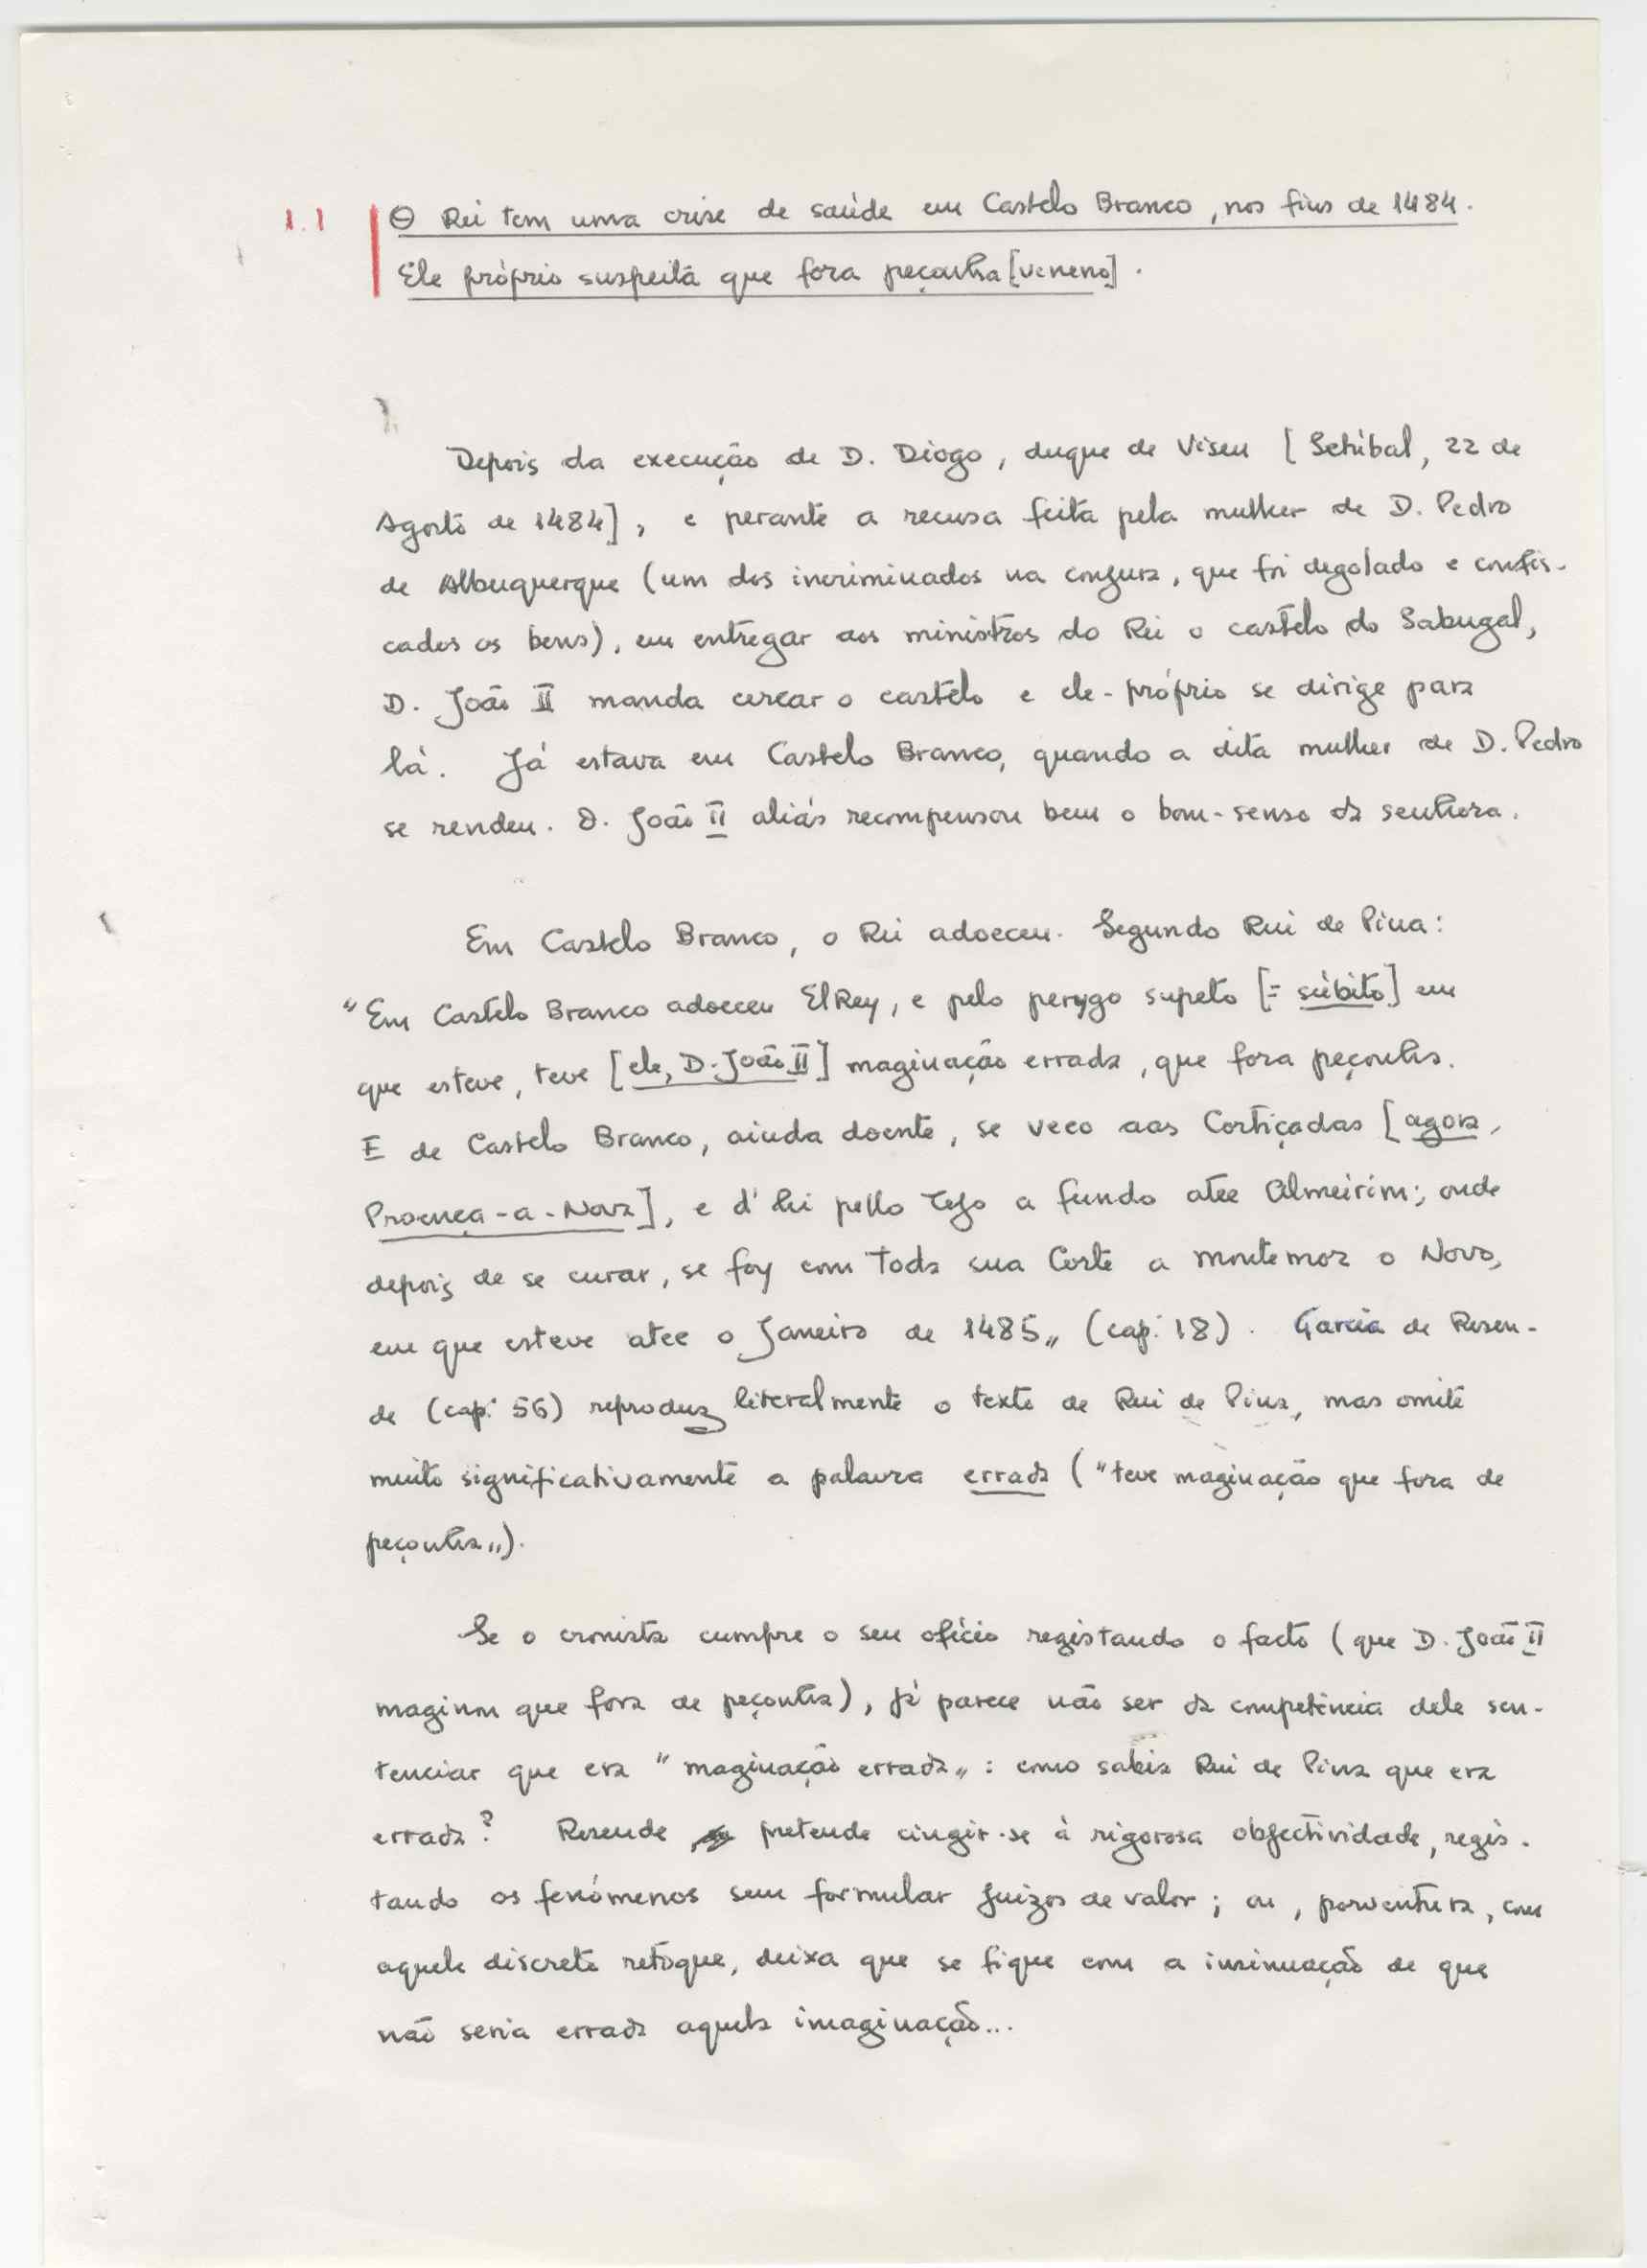 1.1 O Rei tem uma crise de saúde em Castelo Branco, nos fins de 1484.
Ele próprio suspeita que fora peçonha [veneno].
Depois da execução de D. Diogo, duque de Viseu [Setúbal, 22 de
Agosto de 1484], e perante a recusa feita pela mulher de D. Pedro
de Albuquerque (um dos incriminados na conjura, que foi degolado e confis-
cados os bens), em entregar aos ministros do Rei o castelo do Sabugal,
D. João II manda cercar o castelo e ele-próprio se dirige para
lá. Já estava em Castelo Branco, quando a dita mulher de D. Pedro
se rendeu. D. João II aliás recompensou bem o bom-senso da senhora.
Em Castelo Branco, o Rei adoeceu. Segundo Rui de Pina:
"Em Castelo Branco adoeceu ElRey, e pelo perygo supeto [= súbito] em
que esteve, teve [ele, D. João II] maginação errada, que fora peçonha.
E de Castelo Branco, ainda doente, se veeo aas Cortiçadas [agora,
Proença-a-Nova], e d'hi pello Tejo a fundo atee Almeirim; onde
depois de se curar, se foy com toda sua Corte a Montemor o Novo,
em que esteve atee o Janeiro de 1485" (cap. 18). Garcia de Resen-
de (cap. 56) reproduz literalmente o texto de Rui de Pina, mas omite
muito significativamente a palavra errada ("teve maginação que fora de
peçonha").
Se o cronista cumpre o seu ofício registando o facto (que D. João II
maginou que fora de peçonha), já parece não ser da competência dele sen-
tenciar que era "maginação errada": como sabia Rui de Pina que era
errada? Resende pretende cingir-se à rigorosa objectividade, regis-
tando os fenómenos sem formular juízos de valor; ou, porventura, com
aquele discreto retoque, deixa que se fique com a insinuação de que
não seria errada aquela imaginação...